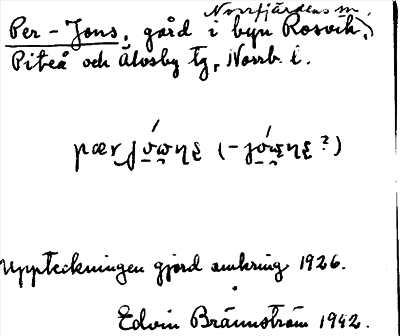 Norrfjärdens sn.
Per-Jons, gård i byn Rosvik,
Piteå och Älvsby tg, Norrb. l.
Uppteckningen gjord omkring 1926.
Edvin Brännström 1942.